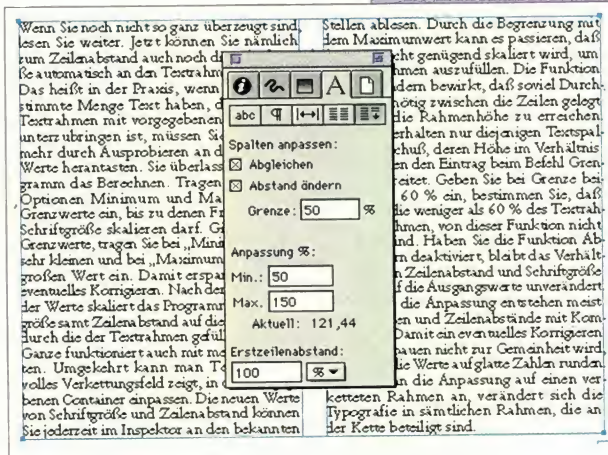 Wenn Sie noch nicht so ganz überzeugt sind,
lesen Sie weiter. Jetzt können Sie nämlich
zum Zeilenabstand auch noch di
ße automatisch an den Textrahm
Das heißt in der Praxis, wenn
stimmte Menge Text haben, d
Textrahmen mit vorgegebenen
unterzubringen ist, müssen Sie
mehr durch Ausprobieren an d
Werte herantasten. Sie überlass
gramm das Berechnen. Tragen
Optionen Minimum und Ma
Grenzwerte ein, bis zu denen Fr
Schriftgröße skalieren darf. G
Grenzwerte, tragen Sie bei „Mini
sehr kleinen und bei „Maximum
großen Wert ein. Damit erspar
eventuelles Korrigieren. Nach der
der Werte skaliert das Programm
größe samt Zeilenabstand auf die
durch die der Textrahmen gefül
Ganze funktioniert auch mit me
ten. Umgekehrt kann man Te
volles Verkettungsfeld zeigt, in
benen Container einpassen. Die neuen Werte
von Schriftgröße und Zeilenabstand können
Sie jederzeit im Inspektor an den bekannten
Stellen ablesen. Durch die Begrenzung mit
dem Maximumwert kann es passieren, daß
cht genügend skaliert wird, um
men auszufüllen. Die Funktion
dern bewirkt, daß soviel Durch-
nötig zwischen die Zeilen gelegt
die Rahmenhöhe zu erreichen.
erhalten nur diejenigen Textspal
chuß, deren Höhe im Verhältnis
en den Eintrag beim Befehl Gren-
reitet. Geben Sie bei Grenze bei-
60 % ein, bestimmen Sie, daß
die weniger als 60 % des Textrah-
hmen, von dieser Funktion nicht
nd. Haben Sie die Funktion Ab-
n deaktiviert, bleibt das Verhält-
n Zeilenabstand und Schriftgröße
f die Ausgangswerte unverändert
die Anpassung entstehen meist
en und Zeilenabstände mit Kom-
Damit ein eventuelles Korrigieren
bauen nicht zur Gemeinheit wird,
die Werte auf glatte Zahlen runden.
n die Anpassung auf einen ver-
ketteten Rahmen an, verändert sich die
Typografie in sämtlichen Rahmen, die an
der Kette beteiligt sind.
A
abc ¶
Spalten anpassen:
Abgleichen
Abstand ändern
Grenze: 50 %
Anpassung %:
Min.: 50
Max. 150
Aktuell: 121,44
Erstzeilenabstand:
100 %